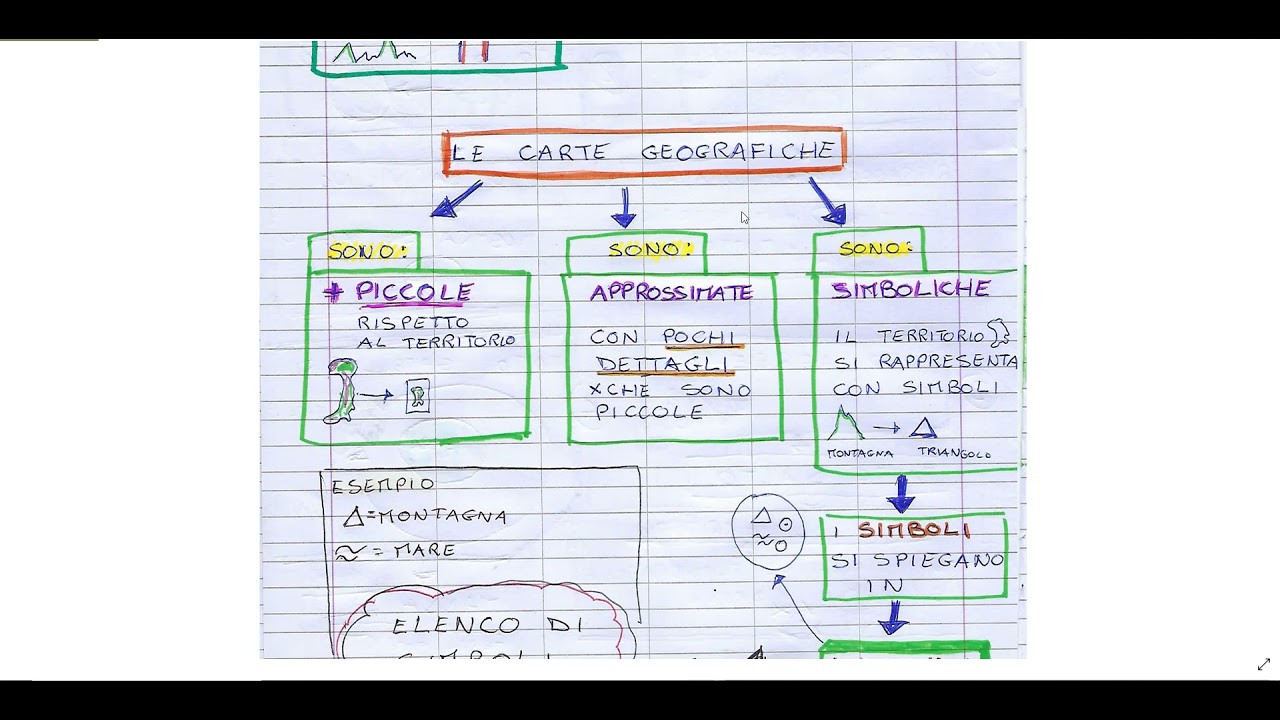 LE CARTE GEOGRAFICHE
SONO:
* PICCOLE
RISPETTO
AL TERRITORIO
SONO:
APPROSSIMATE
CON POCHI
DETTAGLI
XCHE SONO
PICCOLE
SONO:
SIMBOLICHE
IL TERRITORIO
SI RAPPRESENTA
CON SIMBOLI
MONTAGNA TRIANGOLO
I SIMBOLI
SI SPIEGANO
IN
ESEMPIO
Δ=MONTAGNA
≈ = MARE
ELENCO DI
SIMBOLI